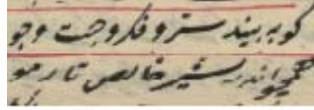 کو به بیند ستر و فکر و جست و جو
همچو اندر شیر خالص تار مو